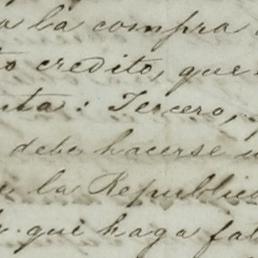 a la compra
to credito, que
nta: Tercero,
debe hacerse
la Republica
que haga fal